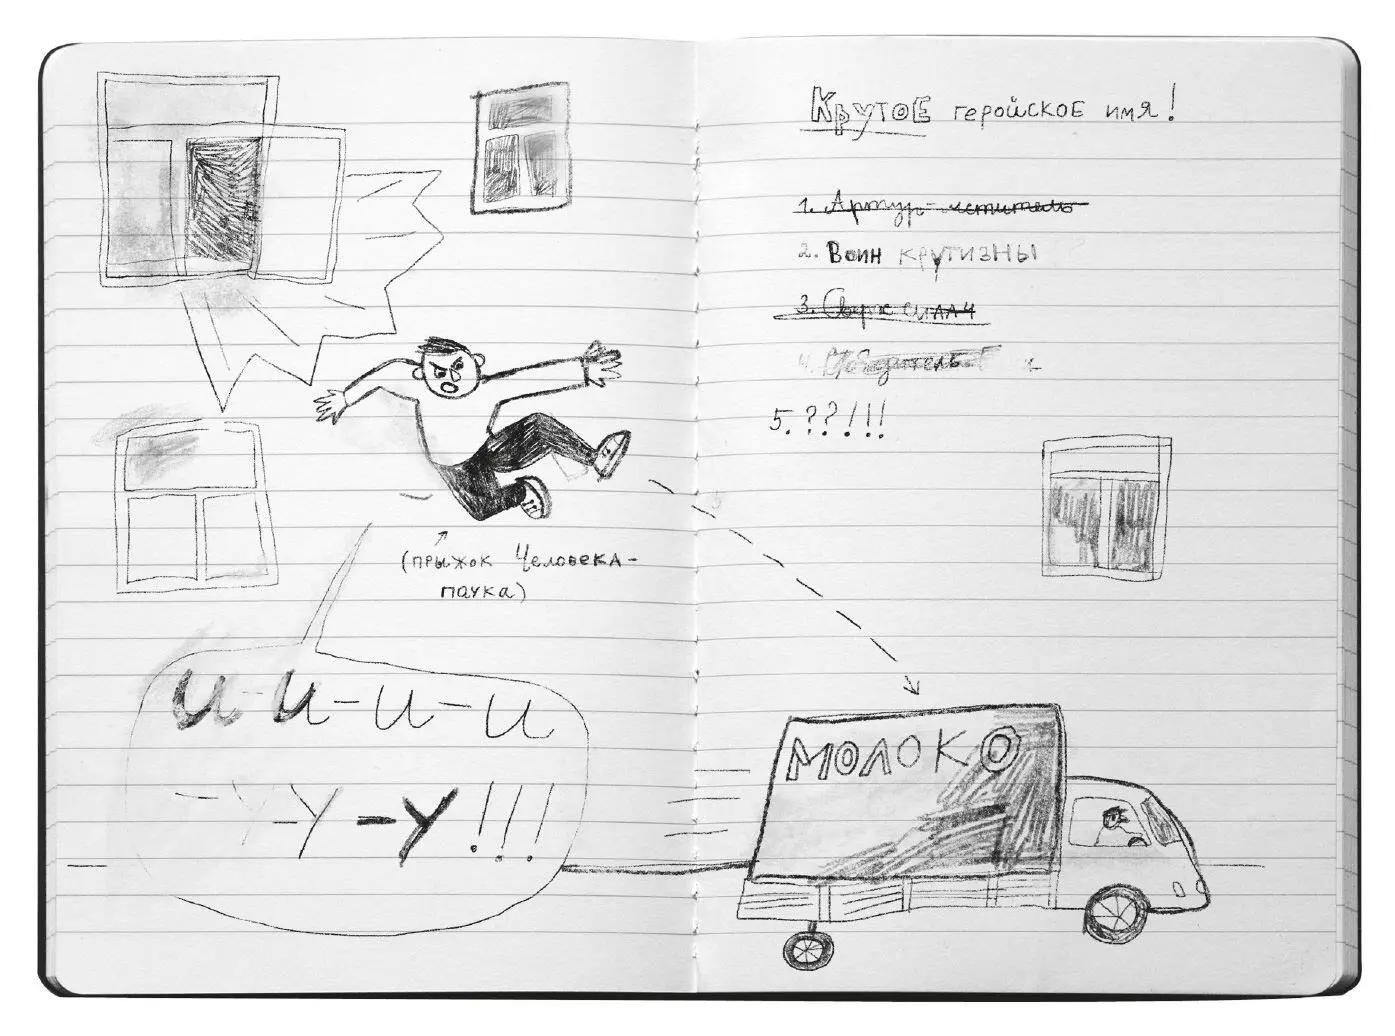 (прыжок Человека-
паука)
и-и-и-и
-у-у-у!!!
КрутоЕ геройскоЕ имя!
1. Артур-мститель
2. Воин крутизны
3. Сверх силач
4. Победитель
5. ??!!!
МОЛОКО